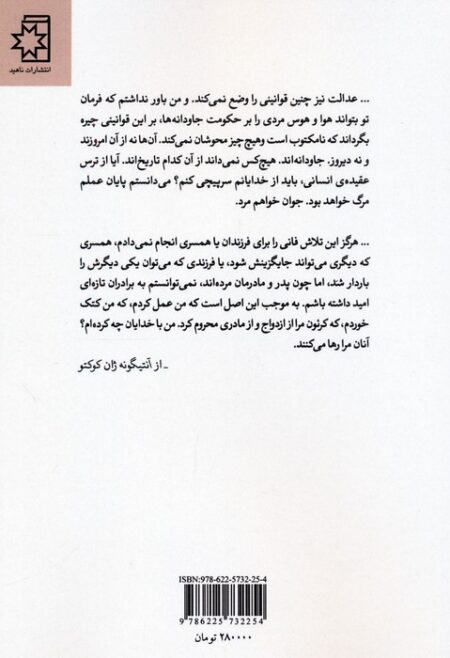 انتشارات ناهید
... عدالت نیز چنین قوانینی را وضع نمی‌کند. و من باور نداشتم که فرمان
تو بتواند هوا و هوس مردی را بر حکومت جاودانه‌ها، بر این قوانینی چیره
بگرداند که نامکتوب است وهیچ‌چیز محوشان نمی‌کند. آن‌ها نه از آن امروزند
و نه دیروز. جاودانه‌اند. هیچ‌کس نمی‌داند از آن کدام تاریخ‌اند. آیا از ترس
عقیده‌ی انسانی، باید از خدایانم سرپیچی کنم؟ می‌دانستم پایان عملم
مرگ خواهد بود. جوان خواهم مرد.
... هرگز این تلاش فانی را برای فرزندان یا همسری انجام نمی‌دادم، همسری
که دیگری می‌تواند جایگزینش شود، یا فرزندی که می‌توان یکی دیگرش را
باردار شد، اما چون پدر و مادرمان مرده‌اند، نمی‌توانستم به برادران تازه‌ای
امید داشته باشم. به موجب این اصل است که من عمل کردم، که من کتک
خوردم، که کرئون مرا از ازدواج و از مادری محروم کرد. من با خدایان چه کرده‌ام؟
آنان مرا رها می‌کنند.
ـ از آنتیگونه ژان کوکتو
ISBN:978-622-5732-25-4
9 786225 732254
۲۸۰۰۰۰ تومان